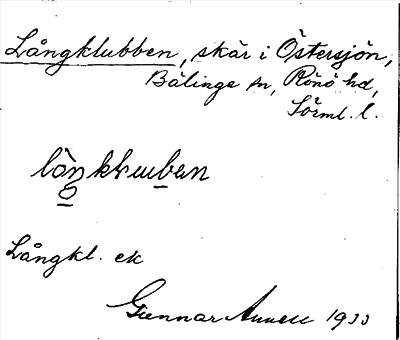 Långklubben, skär i Östersjön,
Bälinge sn, Rönö hd,
Sörml. l.
Långkl. ek
Gunnar 1933